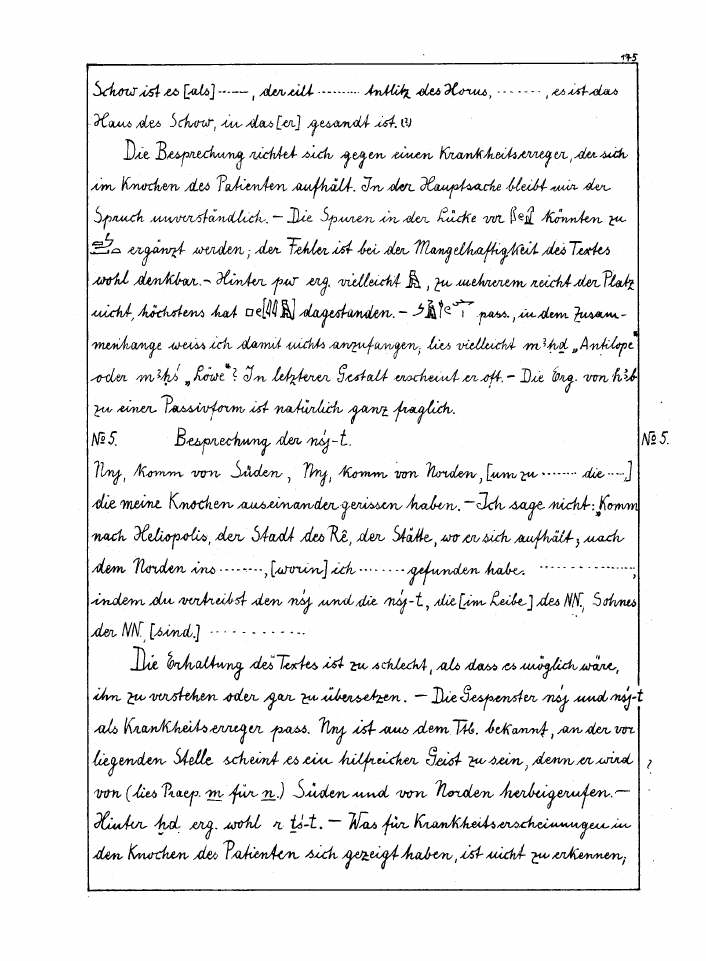 175
Schow ist es [als] ------, der eilt ---------- Antlitz des Horus, -------, es ist das
Haus des Schow, in das [er] gesandt ist. (?)
Die Besprechung richtet sich gegen einen Krankheitserreger, der sich
im Knochen des Patienten aufhält. In der Hauptsache bleibt mir der
Spruch unverständlich. – Die Spuren in der Lücke vor könnten zu
ergänzt werden; der Fehler ist bei der Mangelhaftigkeit des Textes
wohl denkbar. – Hinter pw erg. vielleicht , zu mehrerem reicht der Platz
nicht, höchstens hat dagestanden. – pass., in dem Zusam-
menhange weiss ich damit nichts anzufangen, lies vielleicht mꜣḥḏ „Antilope“
oder mꜣḥś „Löwe“? In letzterer Gestalt erscheint er oft. – Die Erg. von ḥꜣb
zu einer Passivform ist natürlich ganz fraglich.
No 5. Besprechung der nśj-t. No 5.
Nnj, komm von Süden, Nnj, komm von Norden, [um zu -------- die ----]
die meine Knochen auseinander gerissen haben. – Ich sage nicht: „Komm
nach Heliopolis, der Stadt des Rê, der Stätte, wo er sich aufhält; nach
dem Norden ins ---------, [worin] ich -------- gefunden habe. ----------------,
indem du vertreibst den nśj und die nśj-t, die [im Leibe] des NN., Sohnes
der NN. [sind.] -----------
Die Erhaltung des Textes ist zu schlecht, als dass es möglich wäre,
ihn zu verstehen oder gar zu übersetzen. – Die Gespenster nśj und nśj-t
als Krankheitserreger pass. Nnj ist aus dem Ttb. bekannt, an der vor
liegenden Stelle scheint es ein hilfreicher Geist zu sein, denn er wird ?
von (lies Praep. m für n.) Süden und von Norden herbeigerufen. –
Hinter ḥd erg. wohl r tś-t. – Was für Krankheitserscheinungen in
den Knochen des Patienten sich gezeigt haben, ist nicht zu erkennen,